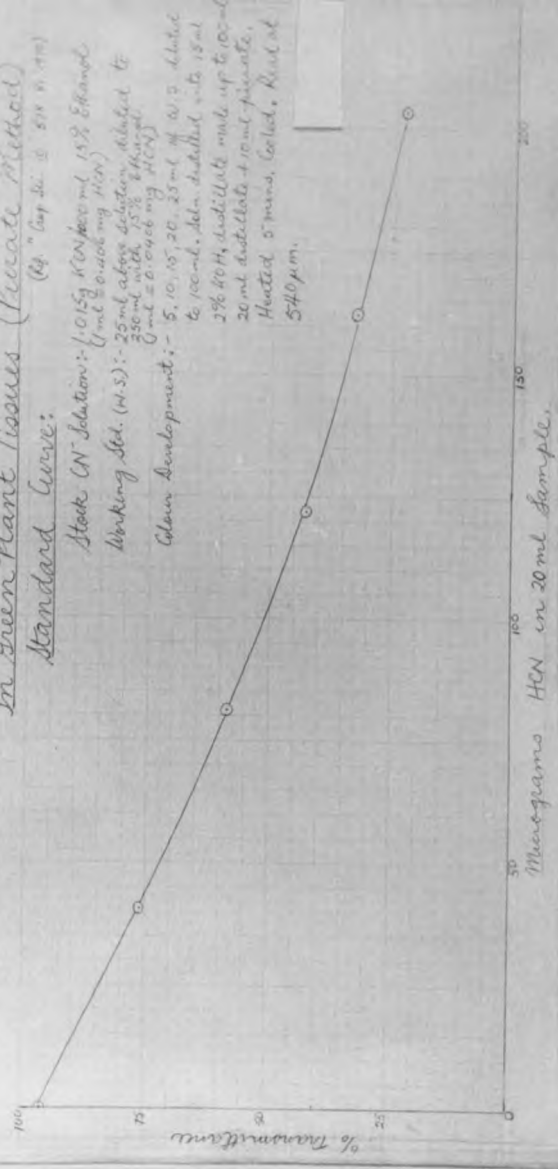 in Green Plant Tissues (Picrate Method)
Standard Curve:
Stock CN⁻ Solution: 1.015g KCN/1000 ml 15% Ethanol
(1 ml ≡ 0.406 mg HCN)
Working Std. (W.S.):- 25 ml above solution diluted to
250 ml with 15% Ethanol
(1 ml ≡ 0.0406 mg HCN)
Colour Development:- 5, 10, 15, 20, 25 ml of W.S. diluted
to 100 ml. Soln. distilled into 15 ml
2% KOH, distillate made up to 100 ml
20 ml distillate + 10 ml picrate,
Heated 5 mins, Cooled. Read at
540 μm.
% Transmittance
100
75
50
25
0
50
100
150
200
Micrograms HCN in 20 ml Sample.